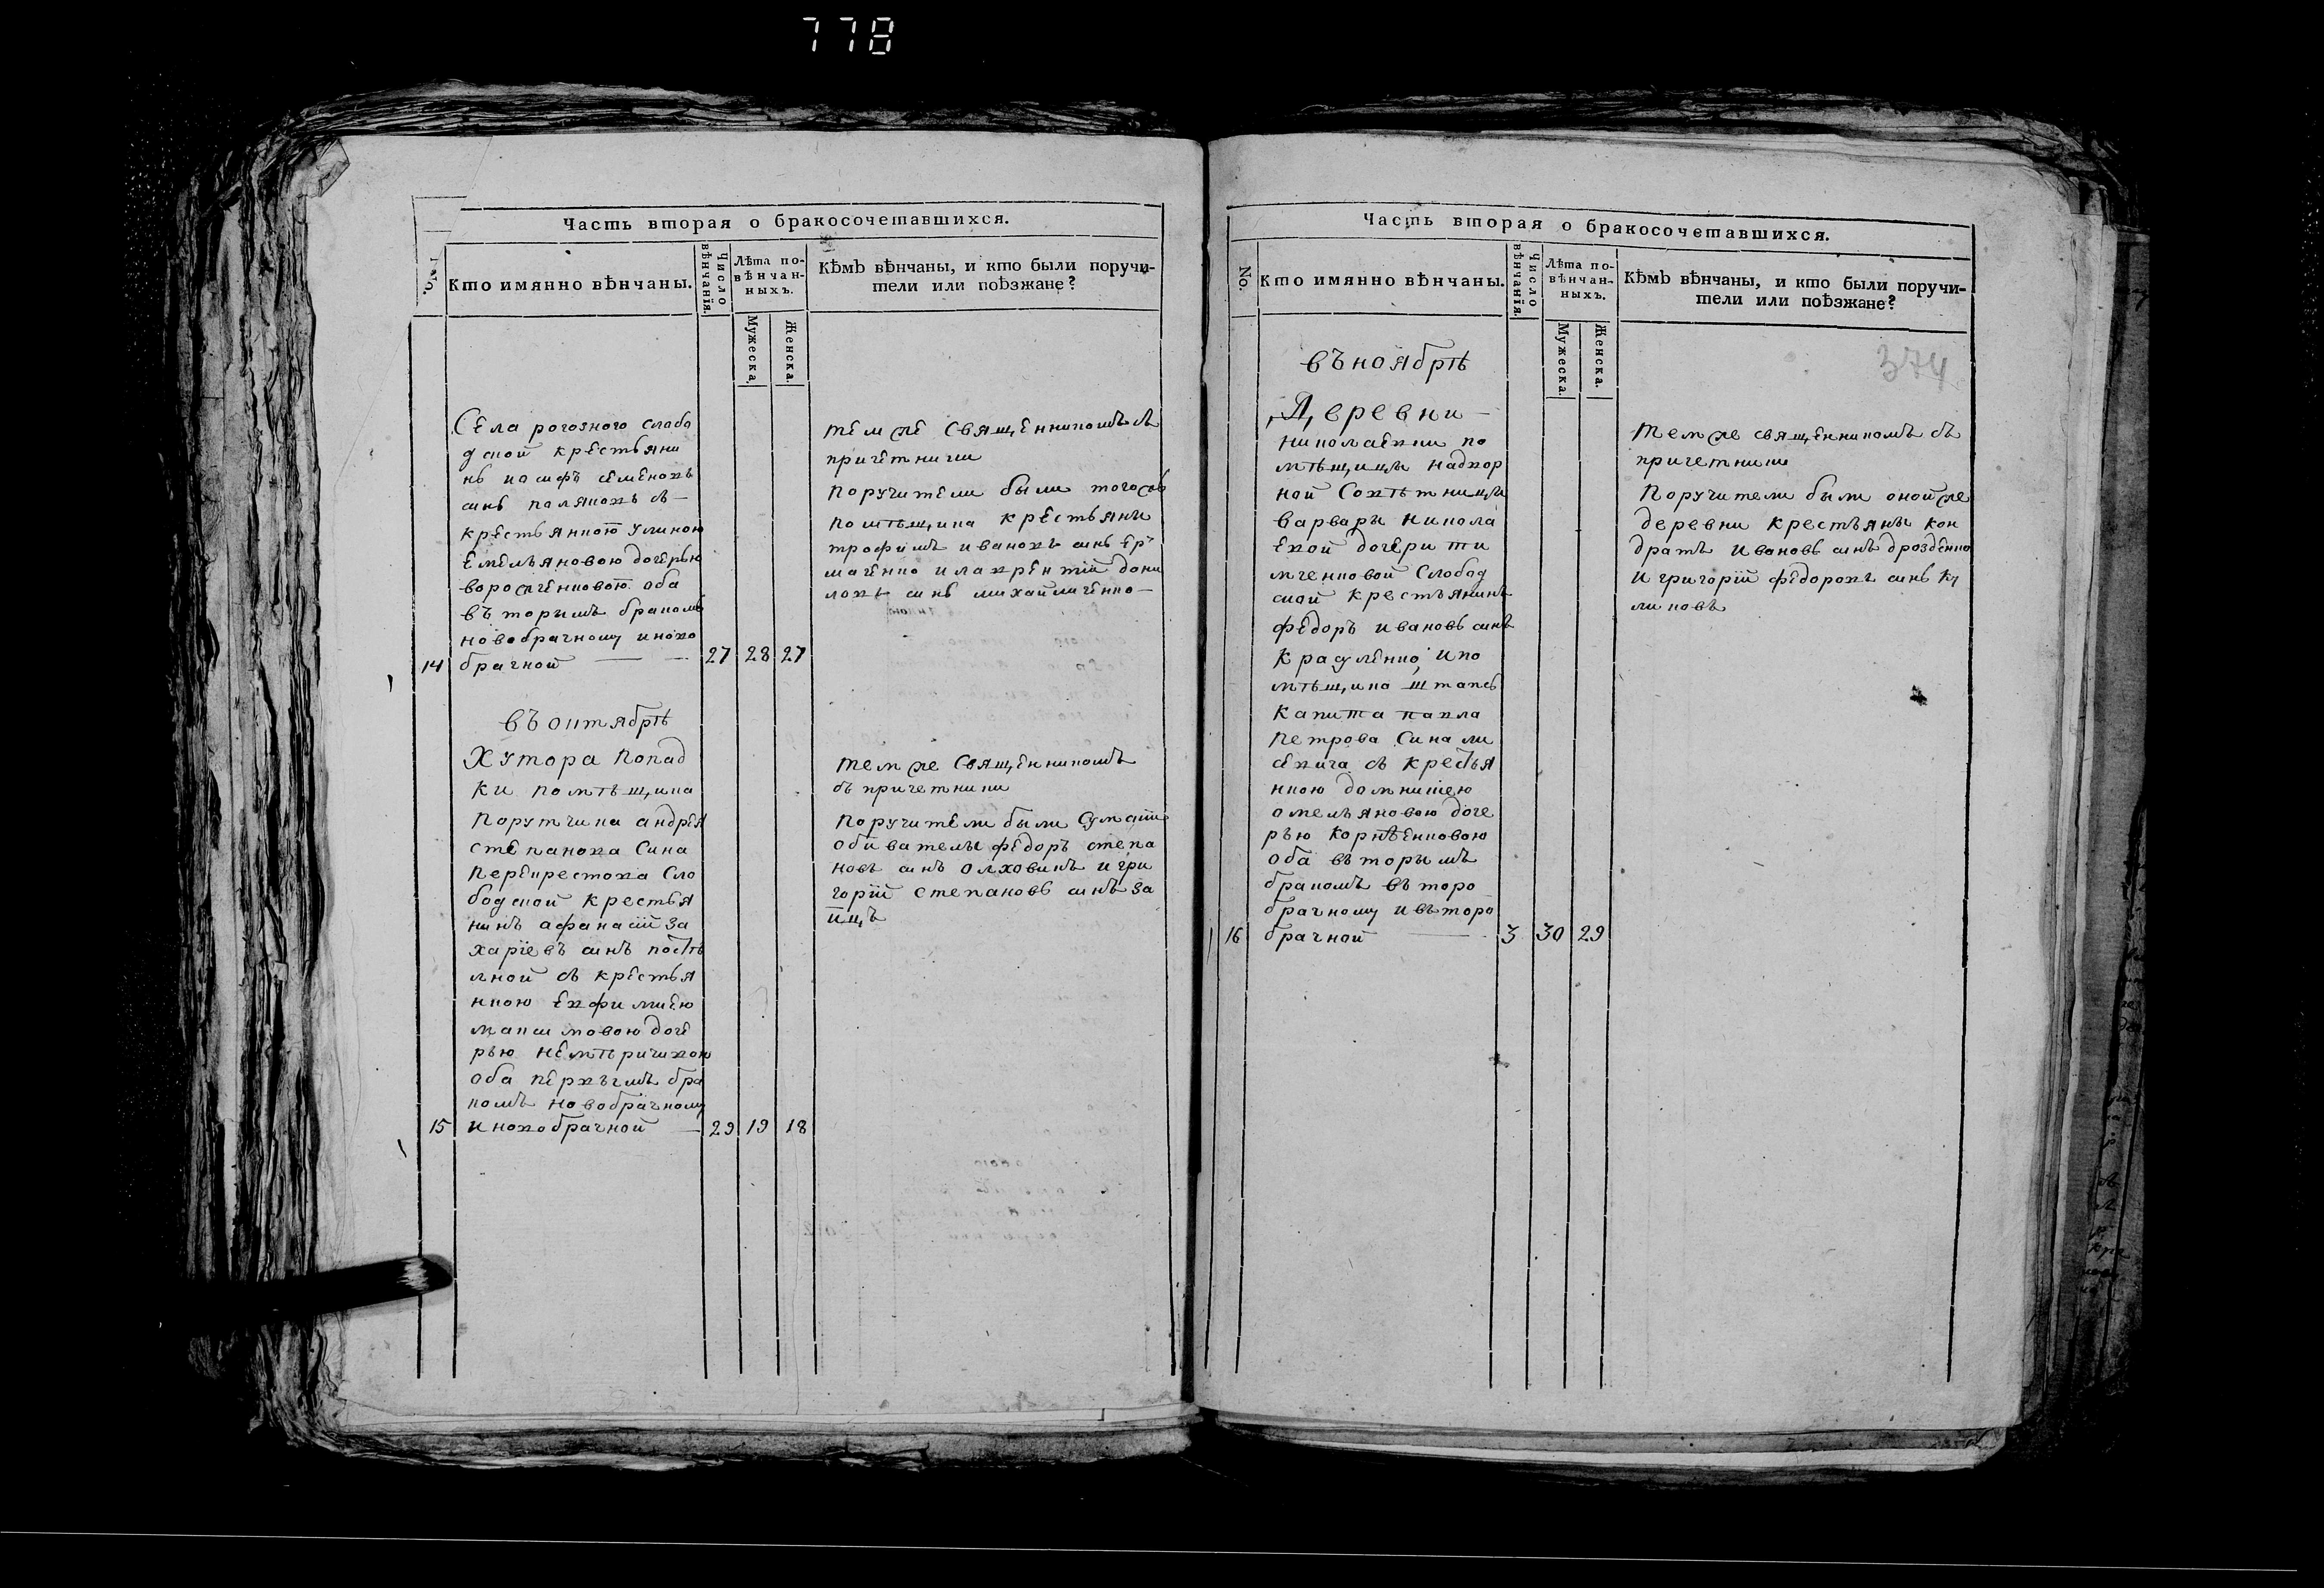 778
Часть вторая о бракосочетавшихся.
No.
Кто имянно вѣнчаны.
Число вѣнчанія.
Лѣта по-
вѣнчан-
ныхъ.
Мужеска.
Женска.
Кѣмъ вѣнчаны, и кто были поручи-
тели или поѣзжане?
Села рогозного слабо
дской крестьяни
нъ иосифъ семеновъ
синъ поляновъ съ
крестьянкою улиною
емельяновою дочерью
ворожченковою оба
вторымъ бракомъ
новобрачному иново
14 брачной 27 28 27
темже священникомъ съ
причетники
поручители были тогожъ
помѣщика крестьяни
трофимъ ивановъ синъ ер
маченко и лаврентій дани
ловъ синъ михайличенко
въ октябрѣ
Хутора попад
ки помѣщика
поручика андрея
степанова сина
перекрестова сло
бодской крестья
нинъ афанасій за
харіевъ синъ постѣ
лной съ крестья
нкою евфимиею
максимовою доче
рью немѣричивою
оба первымъ бра
комъ новобрачному
15 иновобрачной 29 19 18
темже священникомъ
съ причетники
поручители были сумскіе
обиватели федоръ степа
новъ синъ олховикъ и гри
горій степановъ синъ за
ицъ
Часть вторая о бракосочетавшихся.
No.
Кто имянно вѣнчаны.
Число вѣнчанія.
Лѣта по-
вѣнчан-
ныхъ.
Мужеска.
Женска.
Кѣмъ вѣнчаны, и кто были поручи-
тели или поѣзжане?
374
въ ноябрѣ
Деревни
николаевки по
мѣщици надвор
ной совѣтници
варвары никола
евой дочери ти
мченковой слобод
ской крестьянинъ
федоръ ивановъ синъ
помѣщика штапсъ
капита павла
петрова сина ли
севича съ крестья
нкою домникею
омельяновою доче
рью корнѣенковою
оба вторымъ
бракомъ второ
брачному и второ
16 брачной 3 30 29
темже священникомъ съ
причетники
поручители были онойже
деревни крестьяни кон
дратъ ивановъ синъ дрозденко
и григорій федоровъ синъ ку
ликовъ